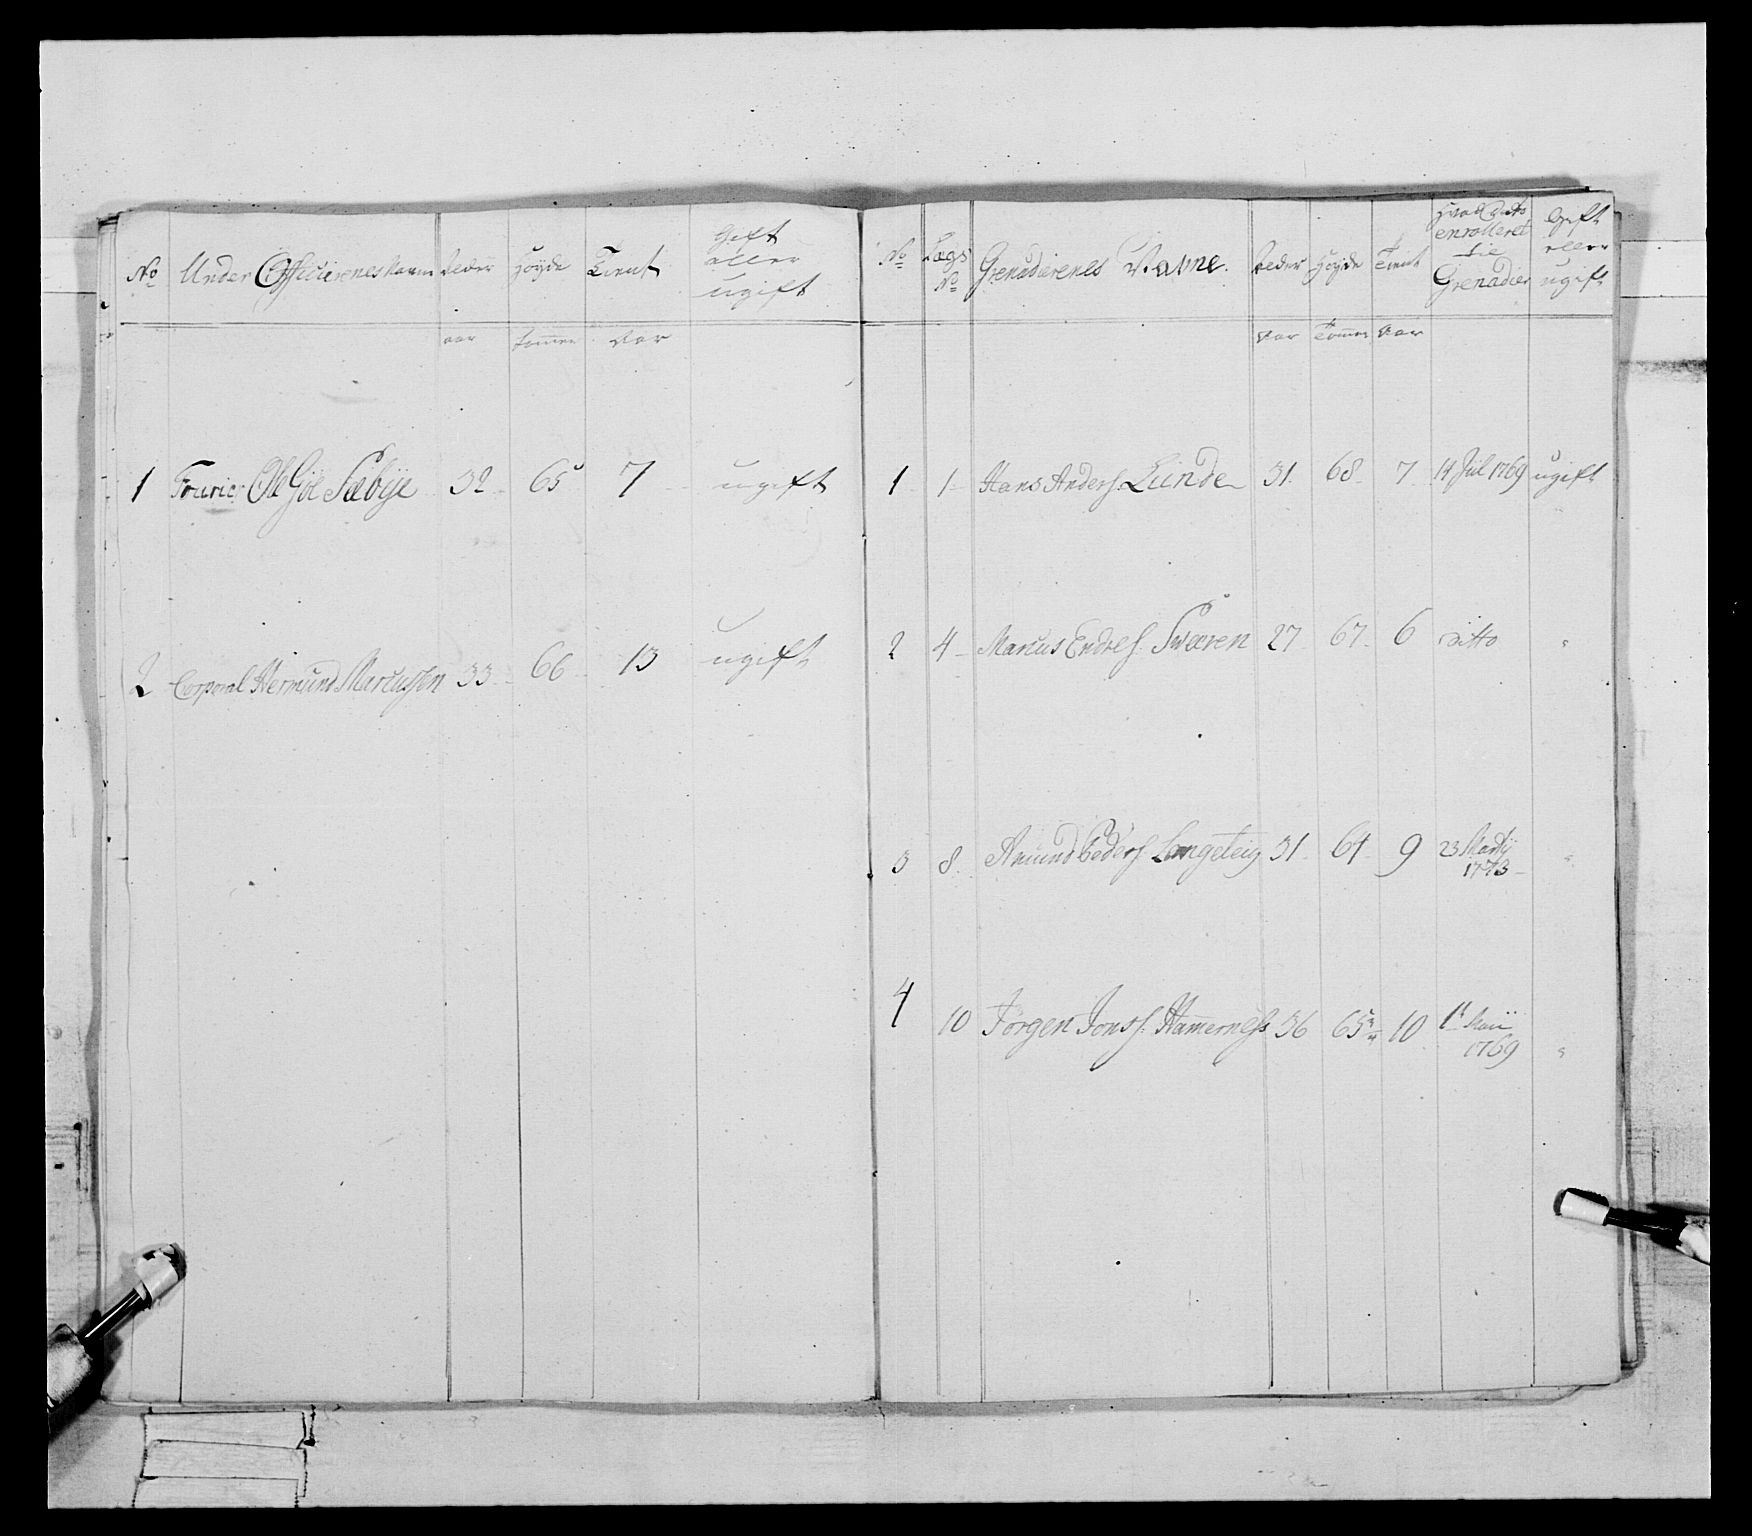 No Under Officiierenes Navne Alder Höyde Tient Gift eller ugift
aar Tommer Aar
1 Fourier Ole Göe Sæbÿe 32 65 7 ugift
2 Corporal Hermund Marcussen 33 66 13 ugift
No Lægs No Grenadierenes Navne. Alder Höyde Tient Hvad Dato enrolleret til Grenadier Gift eller ugift
Aar Tomme Aar
1 1 Hans Anders. Lunde 31. 68 7 14 Jul 1769 ugift
2 4 Marcus Endres. Sværen 27 67 6 ditto "
3 8. Amund Peders. Langeteig 31 64 9 23 Martij 1773 "
4 10 Jörgen Jons. Hamerness 36 65 10 1t Maii 1769 "